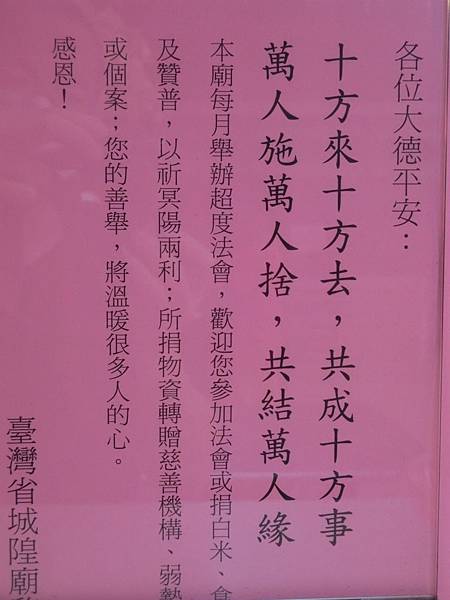 各位大德平安：
十方來十方去，共成十方事
萬人施萬人捨，共結萬人緣
本廟每月舉辦超度法會，歡迎您參加法會或捐白米、食
及贊普，以祈冥陽兩利；所捐物資轉贈慈善機構、弱勢
或個案；您的善舉，將溫暖很多人的心。
感恩！
臺灣省城隍廟